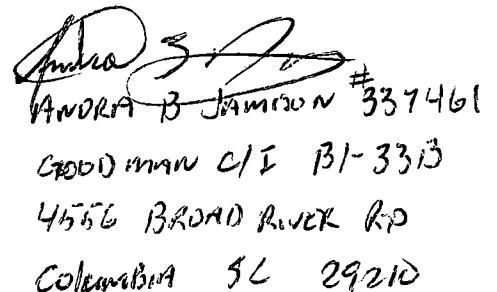 Andra B J
ANDRA B JAMISON #337461
GOODMAN C/I B1-33B
4556 BROAD RIVER RD
COLUMBIA SC 29210